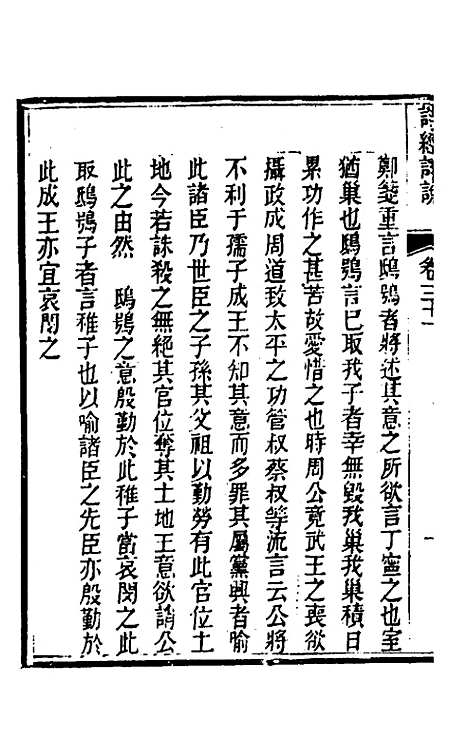 鄭箋重言鴟鴞者將述其意之所欲言丁寧之也室
猶巢也鴟鴞言已取我子者幸無毀我巢我巢積日
累功作之甚苦故愛惜之也時周公竟武王之喪欲
攝政成周道致太平之功管叔蔡叔等流言云公將
不利于孺子成王不知其意而多罪其屬黨興者喻
此諸臣乃世臣之子孫其父祖以勤勞有此官位土
地今若誅殺之無絕其官位奪其土地王意欲誚公
此之由然　鴟鴞之意殷勤於此稚子當哀閔之此
取鴟鴞子者言稚子也以喻諸臣之先臣亦殷勤於
此成王亦宜哀閔之
詩經詳說
卷三十一
一